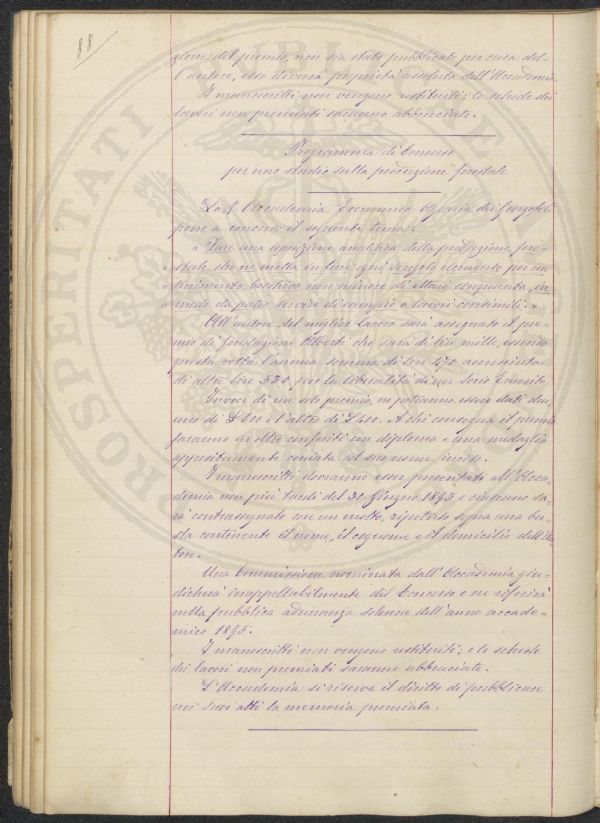 88
zione del premio, non sia stato pubblicato per cura del-
l'autore, esso diverrà proprietà assoluta dell'Accademia.
I manoscritti non vengono restituiti; le schede dei
lavori non premiati saranno abbruciate.
Programma di Concorso
per uno studio sulla produzione forestale
La R. Accademia Economico-Agraria dei Georgofili
pone a concorso il seguente tema:
« Dare una esposizione analitica della produzione fore-
« stale che ne metta in luce ogni singolo elemento per un
« tenimento boschivo non minore di ettari cinquanta, in
« modo da poter servire di esempio a lavori consimili. »
All'autore del miglior lavoro sarà assegnato il pre-
mio di fondazione Alberti che sarà di lire mille, essendo
questa volta l'annua somma di lire 470 accresciuta
di altre lire 530, per la liberalità di un Socio Emerito.
Invece di un solo premio, ne potranno esser dati due,
uno di £ 600 e l'altro di £ 400. A chi consegua il premio
saranno inoltre conferiti un diploma e una medaglia
appositamente coniata col suo nome inciso.
I manoscritti dovranno esser presentati all'Acca-
demia non più tardi del 30 Giugno 1895 e ciascuno sa-
rà contrassegnato con un motto, ripetuto sopra una bu-
sta contenente il nome, il cognome e il domicilio dell'Au-
tore.
Una Commissione nominata dall'Accademia giu-
dicherà inappellabilmente del Concorso e ne riferirà
nella pubblica adunanza solenne dell'anno accade-
mico 1895.
I manoscritti non vengono restituiti; e le schede
dei lavori non premiati saranno abbruciate.
L'Accademia si riserva il diritto di pubblicare
nei suoi atti la memoria premiata.
PROSPERITATI PUBLICAE